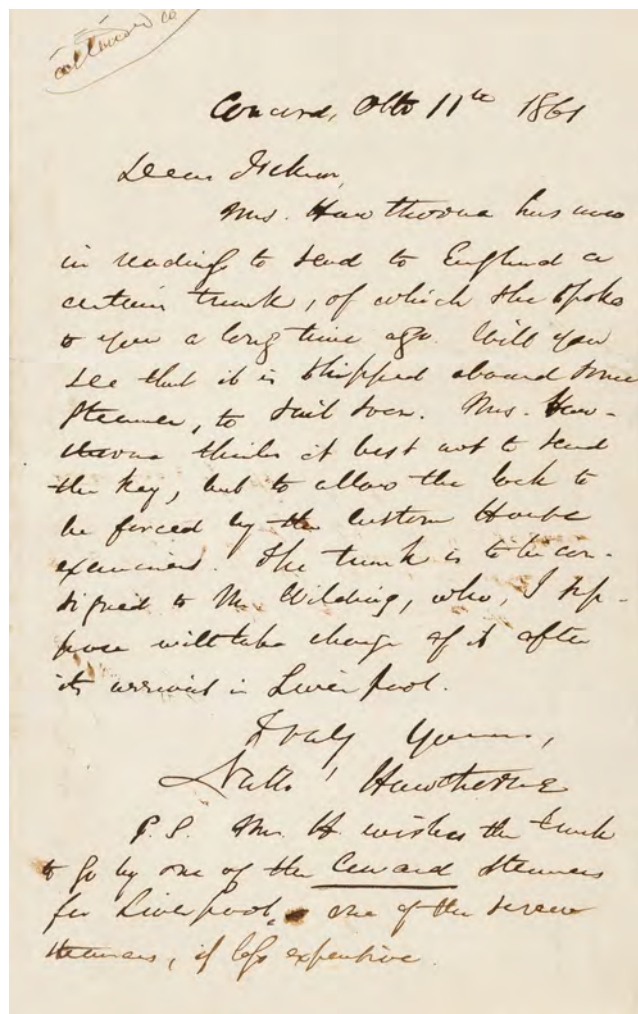 Concord, Octo 11th 1861
Dear Ticknor,
Mrs. Hawthorne has now
in readiness to send to England a
certain trunk, of which she spoke
to you a long time ago. Will you
see that it is shipped aboard some
steamer, to sail soon. Mrs. Haw-
thorne thinks it best not to send
the key, but to allow the lock to
be forced by the Custom House
examiners. The trunk is to be con-
signed to Mr. Wilding, who, I sup-
pose will take charge of it after
its arrival in Liverpool.
Truly Yours,
Nathl Hawthorne
P.S. Mrs. H. wishes the trunk
to go by one of the Cunard steamers
for Liverpool, one of the screw
steamers, if less expensive.